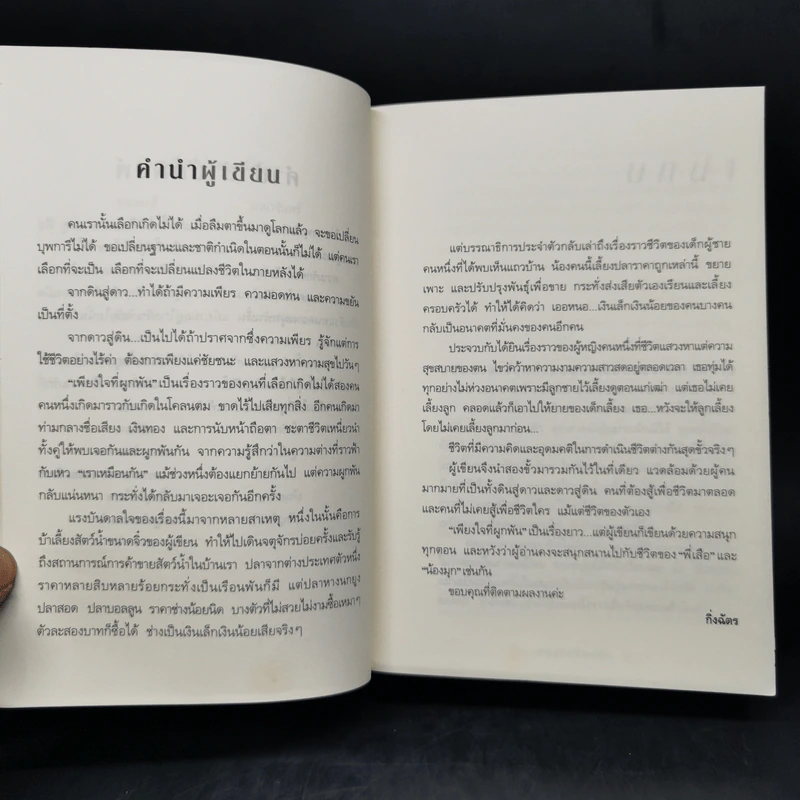 คำนำผู้เขียน
คนเรานั้นเลือกเกิดไม่ได้ เมื่อลืมตาขึ้นมาดูโลกแล้ว จะขอเปลี่ยน
บุพการีไม่ได้ ขอเปลี่ยนฐานะและชาติกำเนิดในตอนนั้นก็ไม่ได้ แต่คนเรา
เลือกที่จะเป็น เลือกที่จะเปลี่ยนแปลงชีวิตในภายหลังได้
จากดินสู่ดาว...ทำได้ถ้ามีความเพียร ความอดทน และความขยัน
เป็นที่ตั้ง
จากดาวสู่ดิน...เป็นไปได้ถ้าปราศจากซึ่งความเพียร รู้จักแต่การ
ใช้ชีวิตอย่างไร้ค่า ต้องการเพียงแค่ชัยชนะ และแสวงหาความสุขไปวันๆ
“เพียงใจที่ผูกพัน” เป็นเรื่องราวของคนที่เลือกเกิดไม่ได้สองคน
คนหนึ่งเกิดมาราวกับเกิดในโคลนตม ขาดไร้ไปเสียทุกสิ่ง อีกคนเกิดมา
ท่ามกลางชื่อเสียง เงินทอง และการนับหน้าถือตา ชะตาชีวิตเหนี่ยวนำ
ทั้งคู่ให้พบเจอกันและผูกพันกัน จากความรู้สึกว่าในความต่างที่ราวฟ้า
กับเหว “เราเหมือนกัน” แม้ช่วงหนึ่งต้องแยกย้ายกันไป แต่ความผูกพัน
กลับแน่นหนา กระทั่งได้กลับมาเจอะเจอกันอีกครั้ง
แรงบันดาลใจของเรื่องนี้มาจากหลายสาเหตุ หนึ่งในนั้นคือการ
บ้าเลี้ยงสัตว์น้ำขนาดจิ๋วของผู้เขียน ทำให้ไปเดินจตุจักรบ่อยครั้งและรับรู้
ถึงสถานการณ์การค้าขายสัตว์น้ำในบ้านเรา ปลาจากต่างประเทศตัวหนึ่ง
ราคาหลายสิบหลายร้อยกระทั่งเป็นเรือนพันก็มี แต่ปลาหางนกยูง
ปลาสอด ปลาบอลลูน ราคาช่างน้อยนิด บางตัวที่ไม่สวยไม่งามซื้อเหมาๆ
ตัวละสองบาทก็ซื้อได้ ช่างเป็นเงินเล็กเงินน้อยเสียจริงๆ
แต่บรรณาธิการประจำตัวกลับเล่าถึงเรื่องราวชีวิตของเด็กผู้ชาย
คนหนึ่งที่ได้พบเห็นแถวบ้าน น้องคนนี้เลี้ยงปลาราคาถูกเหล่านี้ ขยาย
เพาะ และปรับปรุงพันธุ์เพื่อขาย กระทั่งส่งเสียตัวเองเรียนและเลี้ยง
ครอบครัวได้ ทำให้ได้คิดว่า เออหนอ...เงินเล็กเงินน้อยของคนบางคน
กลับเป็นอนาคตที่มั่นคงของคนอีกคน
ประจวบกับได้ยินเรื่องราวของผู้หญิงคนหนึ่งที่ชีวิตแสวงหาแต่ความ
สุขสบายของตน ไขว่คว้าหาความงามความสาวสดอยู่ตลอดเวลา เธอทุ่มได้
ทุกอย่างไม่ห่วงอนาคตเพราะมีลูกชายไว้เลี้ยงดูตอนแก่เฒ่า แต่เธอไม่เคย
เลี้ยงลูก คลอดแล้วก็เอาไปให้ยายของเด็กเลี้ยง เธอ...หวังจะให้ลูกเลี้ยง
โดยไม่เคยเลี้ยงลูกมาก่อน...
ชีวิตที่มีความคิดและอุดมคติในการดำเนินชีวิตต่างกันสุดขั้วจริงๆ
ผู้เขียนจึงนำสองขั้วมารวมกันไว้ในที่เดียว แวดล้อมด้วยผู้คน
มากมายที่เป็นทั้งดินสู่ดาวและดาวสู่ดิน คนที่ต้องสู้เพื่อชีวิตมาตลอด
และคนที่ไม่เคยสู้เพื่อชีวิตใคร แม้แต่ชีวิตของตัวเอง
“เพียงใจที่ผูกพัน” เป็นเรื่องยาว...แต่ผู้เขียนก็เขียนด้วยความสนุก
ทุกตอน และหวังว่าผู้อ่านคงจะสนุกสนานไปกับชีวิตของ “พี่เสือ” และ
“น้องมุก” เช่นกัน
ขอบคุณที่ติดตามผลงานค่ะ
กิ่งฉัตร